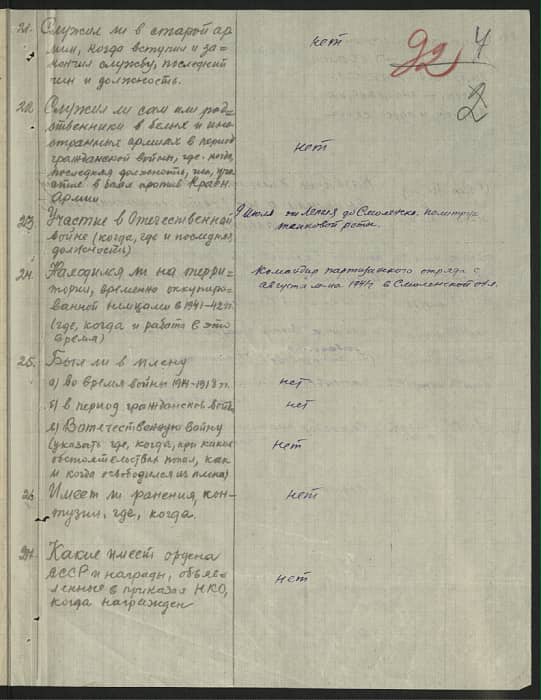 21. Служил ли в старой ар
мии, когда вступил и за=
кончил службу, последний
чин и должность.
нет
92
4
2
22. Служил ли сам или род=
ственники в белых и ино
странных армиях в период
гражданской войны, где, когда,
последняя должность, чин, уча
стие в боях против Красн.
Армии
нет
23. Участие в Отечественной
войне (когда, где и последняя
должность)
Лепеля до Смоленска. политрук
танковой роты.
24. Находился ли на терри=
тории, временно оккупиро=
ванной немцами в 1941-42 г.
(где, когда и работа в это
время)
Командир партизанского отряда с
августа м-ца 1941 г в Смоленской обл.
25. Был ли в плену
а) во время войны 1914-1918 гг.
нет
б) в период гражданской войны
нет
в) В отечественную войну
(указать где, когда, при каких
обстоятельствах попал, как
и когда освободился из плена)
нет
26. Имеет ли ранения, кон-
тузии, где, когда.
нет
27. Какие имеет ордена
СССР и награды, объяв=
ленные в приказах НКО,
когда награжден
нет